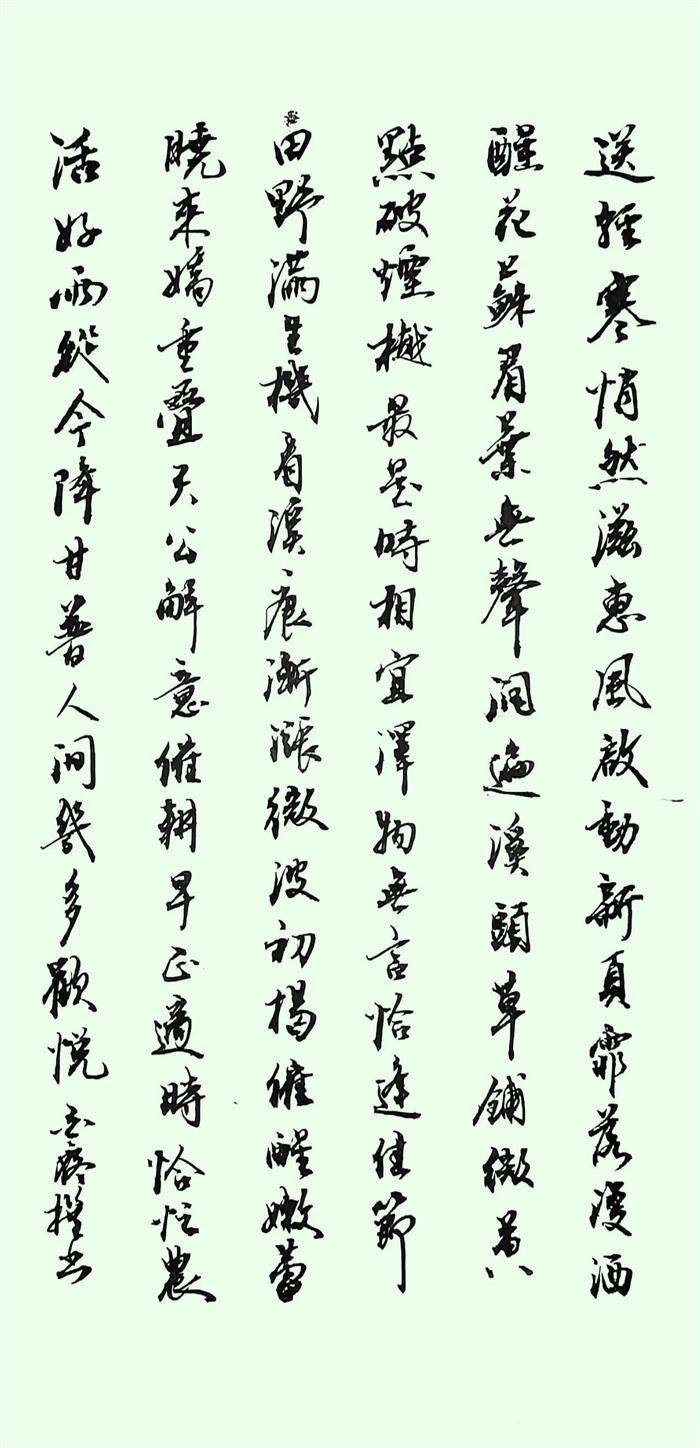 送輕寒悄然滋惠風啟動新頁霏落漫洒
醒花蘇眉葉無聲潤遍溪頭草鋪微黄
點破煙樾最是時相宜澤物無言恰逢佳節
田野滿呈機看溪痕漸漲微波初揭催醒嫩蕾
曉來嬌重疊天公解意催耕早正適時恰忙農
活好雨從今降甘普人間幾多歡悅 撰書